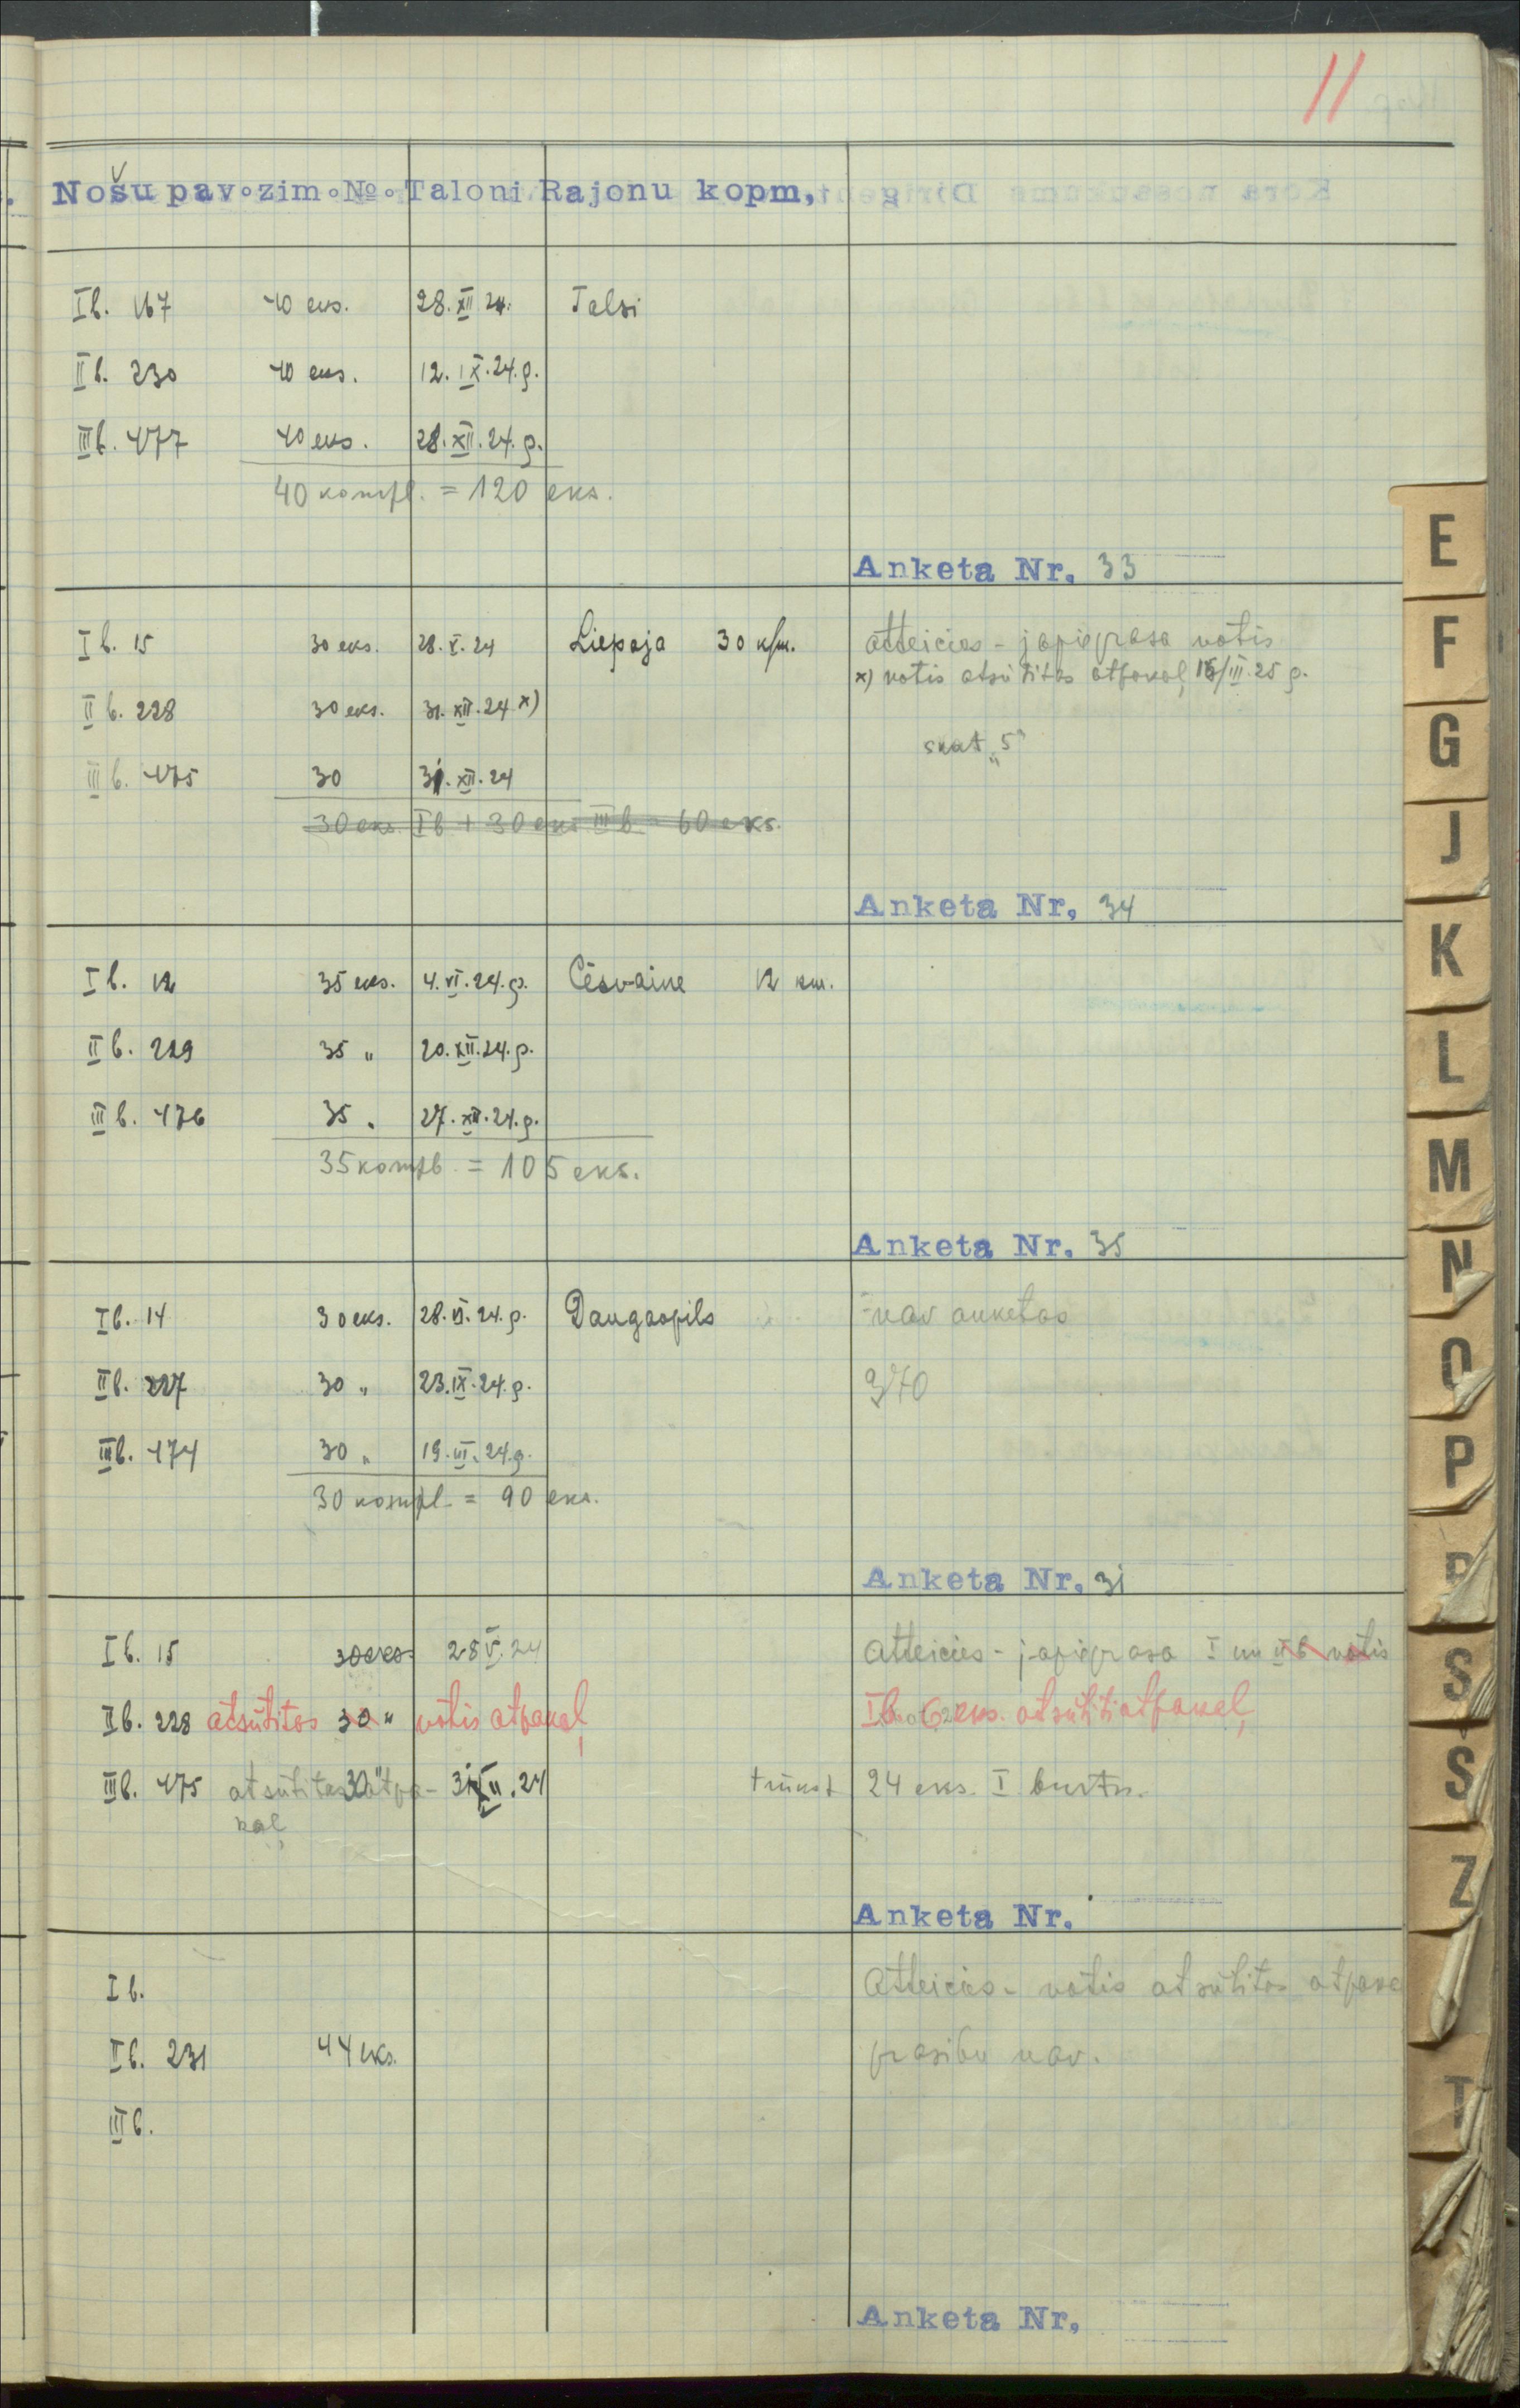 11
Nošu pav. zim. №. Taloni Rajonu kopm,
I b. 167 40 eks. 28. XII 24. Talsi
II b. 230 40 eks. 12. IX. 24. g.
III b. 477 40 eks. 28. XII. 24. g.
40 kompl. = 120 eks.
Anketa Nr. 33
I b. 15 30 eks. 28. V. 24 Liepaja 30 k/m. atteicies - japieprasa notis
x) notis atsūtitas atpakaļ 15/III. 25 g.
II b. 228 30 eks. 31. XII. 24 x)
skat „5"
III b. 475 30 31. XII. 24
30 eks. I b + 30 eks III b = 60 eks.
Anketa Nr. 34
I b. 12 35 eks. 4. VI. 24. g. Cēsvaine 12 km.
II b. 229 35 „ 20. XII. 24. g.
III b. 476 35 „ 27. XII. 24. g.
35 kompl. = 105 eks.
Anketa Nr. 35
I b. 14 30 eks. 28. VI. 24. g. Daugavpils nav anketas
II b. 227 30 „ 23. IX. 24. g.
III b. 474 30 „ 19. III. 24. g.
30 kompl. = 90 eks.
Anketa Nr. 31
I b. 15 30 eks. 28 V. 24 Atteicies - japieprasa I un II b notis
II b. 228 atsūtitas 30 „ notis atpakaļ I b. 6 eks. atsūtiti atpakaļ
III b. 475 atsūtitas 30 " atpa- 31 XII. 24 trūkst 24 eks. I burtn.
kaļ
Anketa Nr.
I b. Atteicies - notis atsūtitas atpaka
II b. 231 44 eks. prasību nav.
III b.
Anketa Nr,
E
F
G
J
K
L
M
N
O
P
R
S
S
Z
T